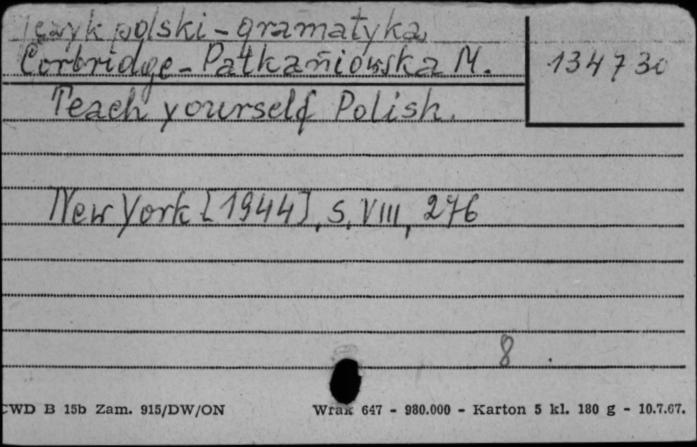 język polski - gramatyka
Corbridge-Patkaniowska M.
134730
Teach yourself Polish.
New York [1944], s. VIII, 276
8
CWD B 15b Zam. 915/DW/ON
Wrak 647 - 980.000 - Karton 5 kl. 180 g - 10.7.67.